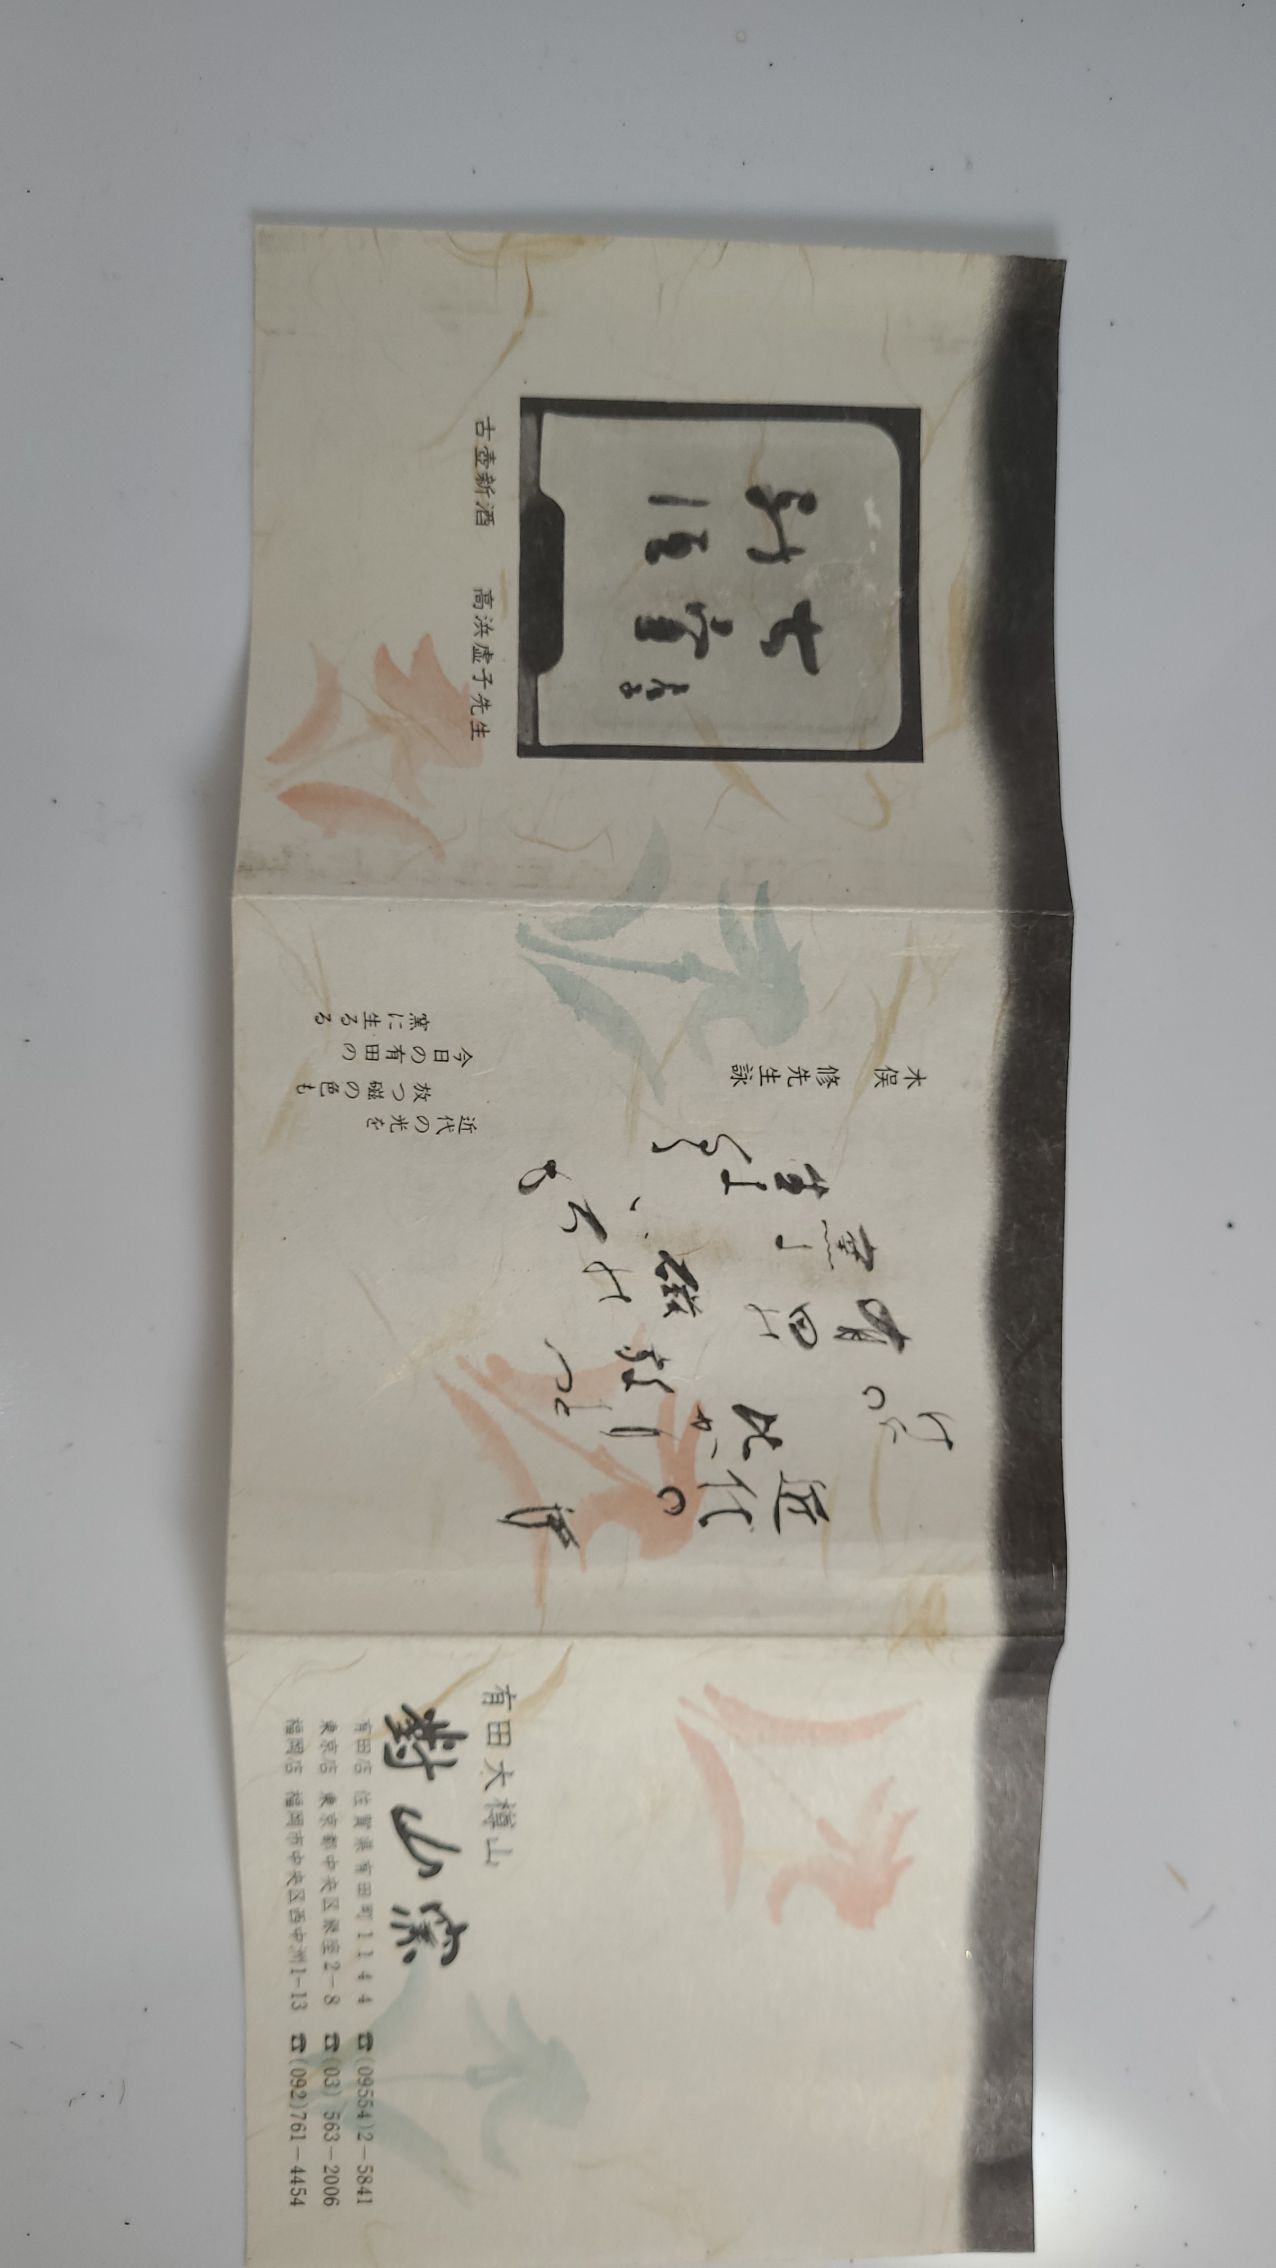 古壺
新酒
虚子
古壺新酒　高浜虚子先生
木俣　修先生詠
近代の
磁
有田の
窯に
近代の光を
放つ磁の色も
今日の有田の
窯に生るる
有田大樽山
對山窯
有田店 佐賀県有田町1144 ☎(09554)2−5841
東京店 東京都中央区銀座2−8 ☎(03) 563−2006
福岡店 福岡市中央区西中洲1−13 ☎(092)761−4454